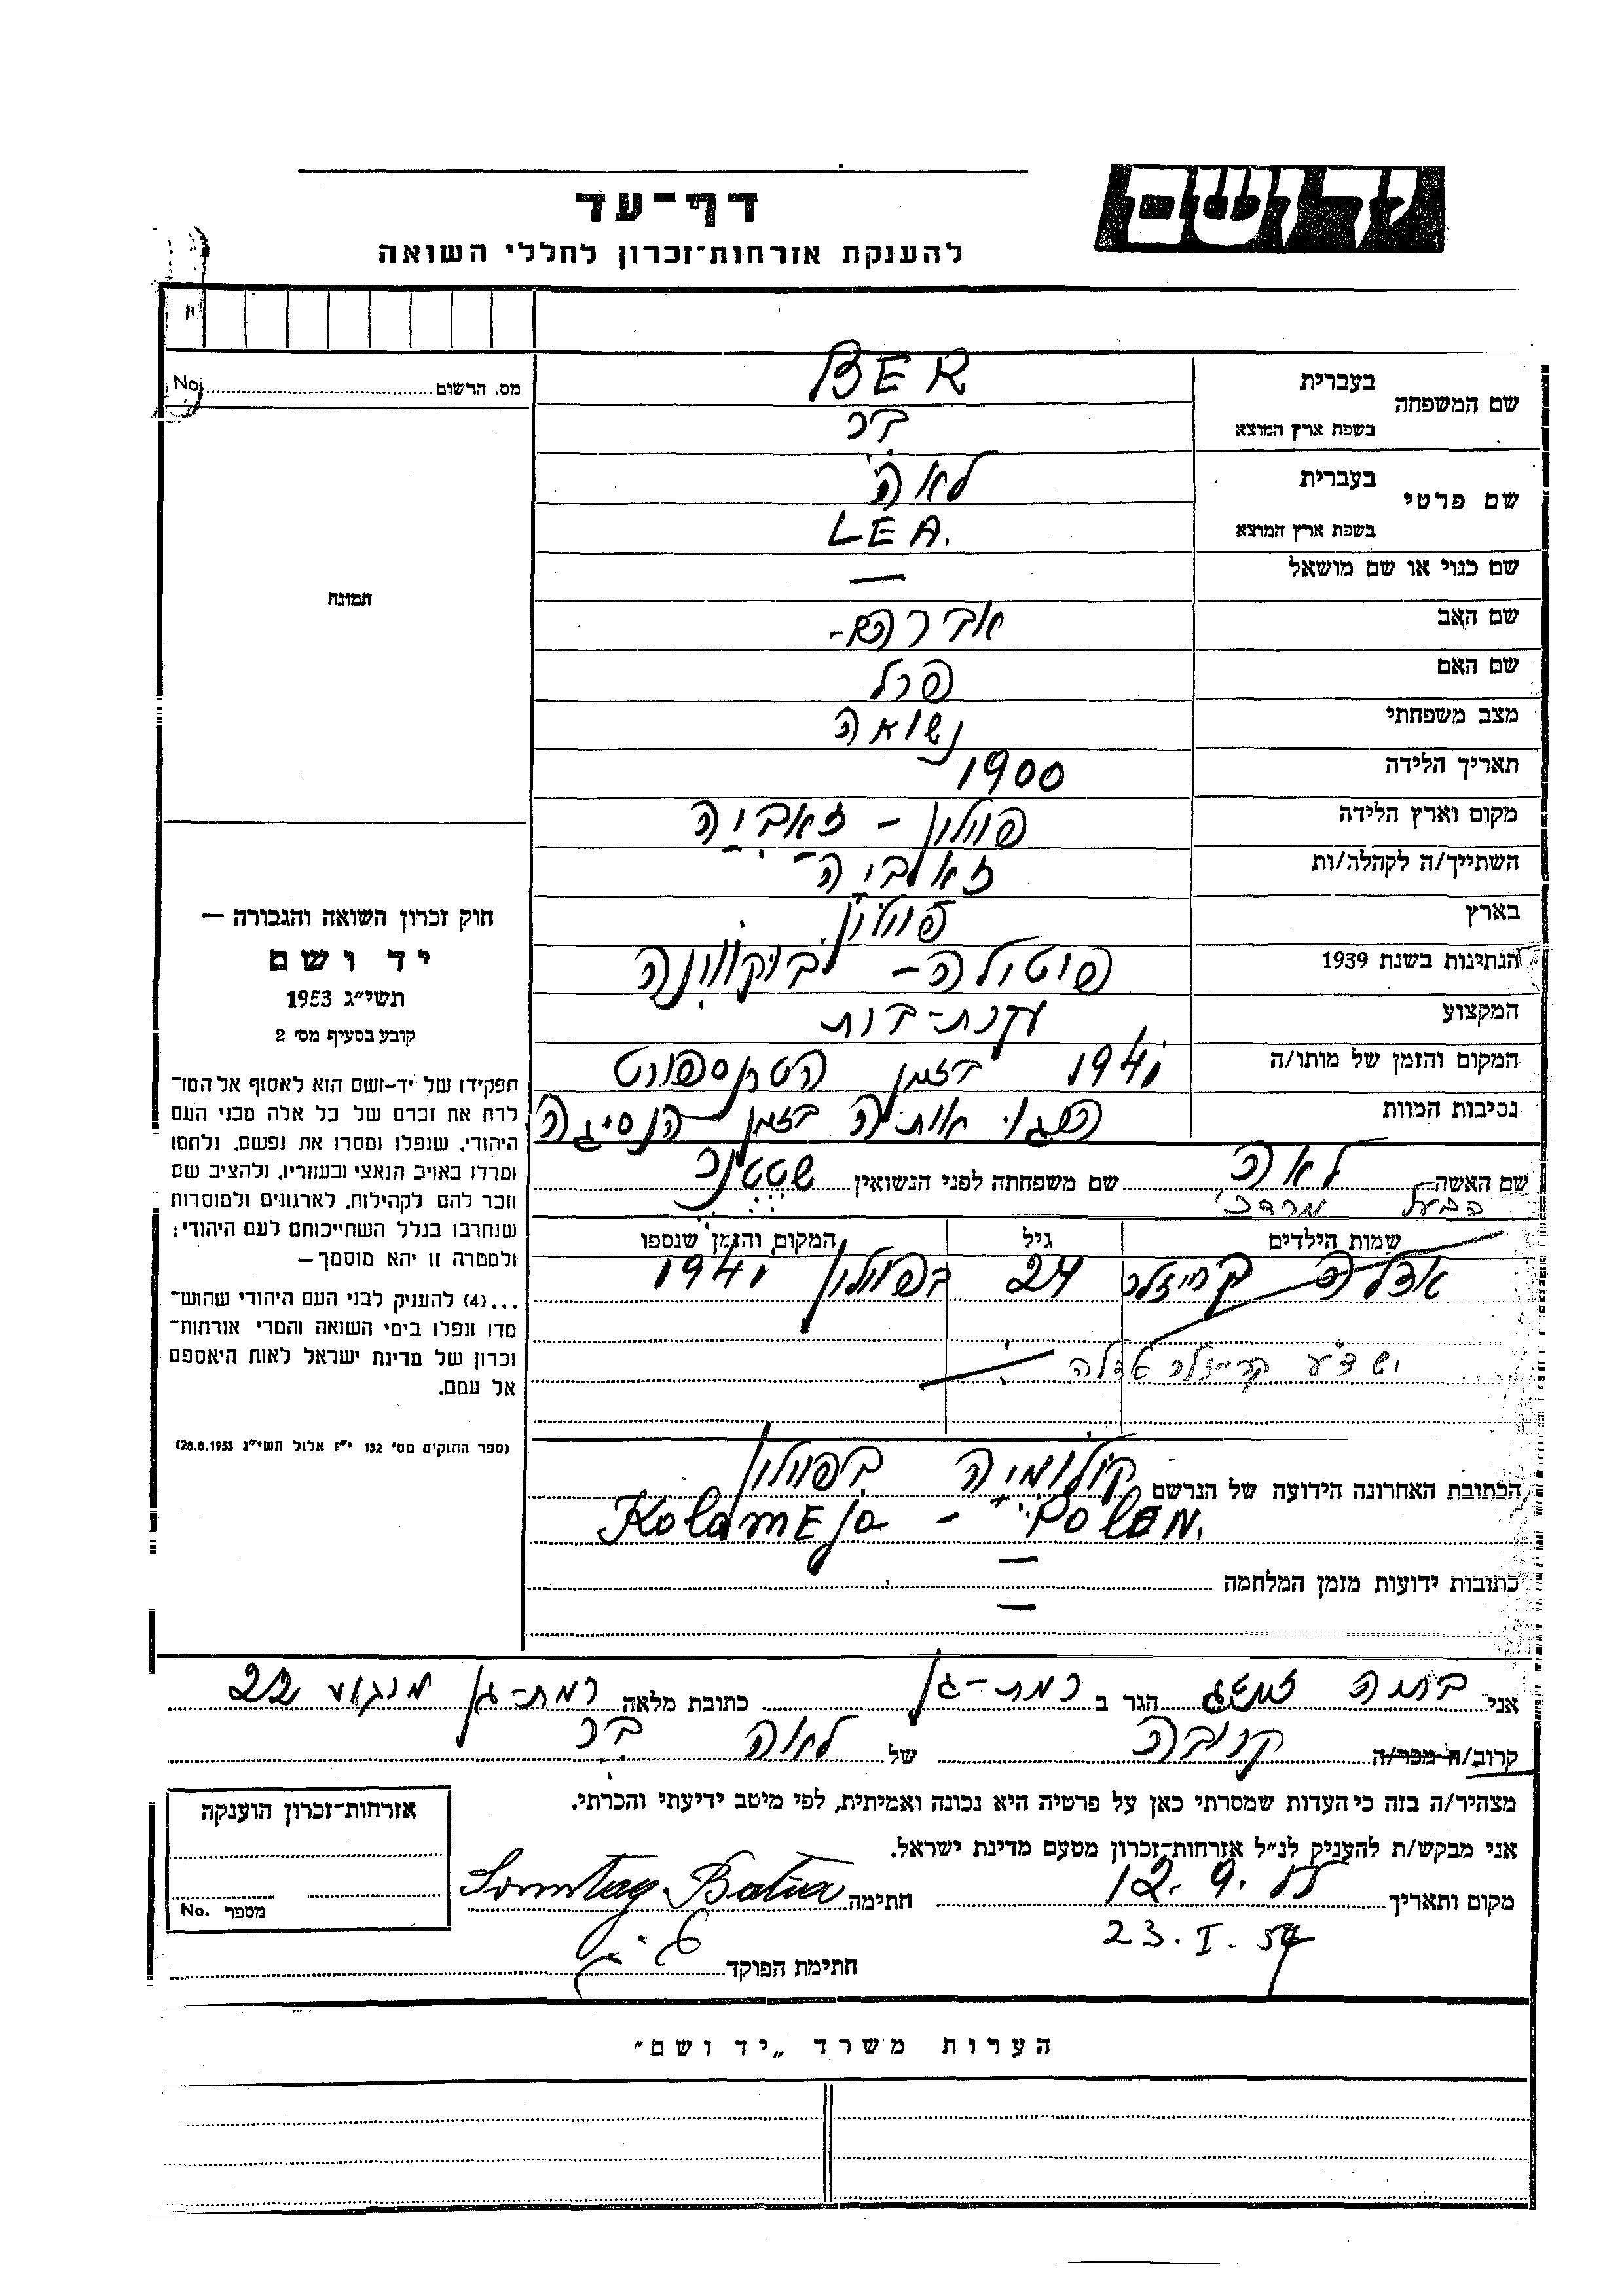 יד ושם
דף־עד
להענקת אזרחות־זכרון לחללי השואה
No. מס. הרשום
שם המשפחה
בעברית BER
בשפת ארץ המוצא בר
שם פרטי
בעברית לאה
בשפת ארץ המוצא LEA.
שם כנוי או שם מושאל —
שם האב אברהם-
שם האם פרל
מצב משפחתי נשואה
תאריך הלידה 1900
מקום וארץ הלידה פולין - זאביה
השתייך/ה לקהלה/ות זאלביה
בארץ פולין
הנתינות בשנת 1939
המקצוע עקרת-בית
המקום והזמן של מותו/ה 1941 בזמן הטרנספורט
נסיבות המוות הרגו אותה בזמן הנסיגה
שם האשה לאה שם משפחתה לפני הנשואין שטטנר
הבעל מרדכי
שמות הילדים גיל המקום והזמן שנספו
אדלה קרייזלר 24 בפולין 1941
יש ד"ע קרייזלר אדלה
הכתובת האחרונה הידועה של הנרשם קולומיה בפולין
KolomEja - PolEn.
כתובות ידועות מזמן המלחמה —
—
תמונה
חוק זכרון השואה והגבורה —
יד ושם
תשי"ג 1953
קובע בסעיף מס' 2
תפקידו של יד-ושם הוא לאסוף אל המו־
לדת את זכרם של כל אלה מבני העם
היהודי, שנפלו ומסרו את נפשם, נלחמו
ומרדו באויב הנאצי ובעוזריו, ולהציב שם
וזכר להם לקהילות, לארגונים ולמוסדות
שנחרבו בגלל השתייכותם לעם היהודי;
ולמטרה זו יהא מוסמך —
...(4) להעניק לבני העם היהודי שהוש־
מדו ונפלו בימי השואה והמרי אזרחות־
זכרון של מדינת ישראל לאות היאספם
אל עמם.
(ספר החוקים מס' 132 י"ז אלול תשי"ג 28.8.1953)
אני בתיה זונטג הגר ב רמת-גן כתובת מלאה רמת-גן 22
קרוב/ה מכר/ה קרובה של לאה בר
מצהיר/ה בזה כי העדות שמסרתי כאן על פרטיה היא נכונה ואמיתית, לפי מיטב ידיעתי והכרתי.
אני מבקש/ת להעניק לנ"ל אזרחות־זכרון מטעם מדינת ישראל.
מקום ותאריך 12.9.55 חתימה Sonntag Batia
23.I.57
חתימת הפוקד
אזרחות־זכרון הוענקה
No. מספר
הערות משרד „יד ושם"